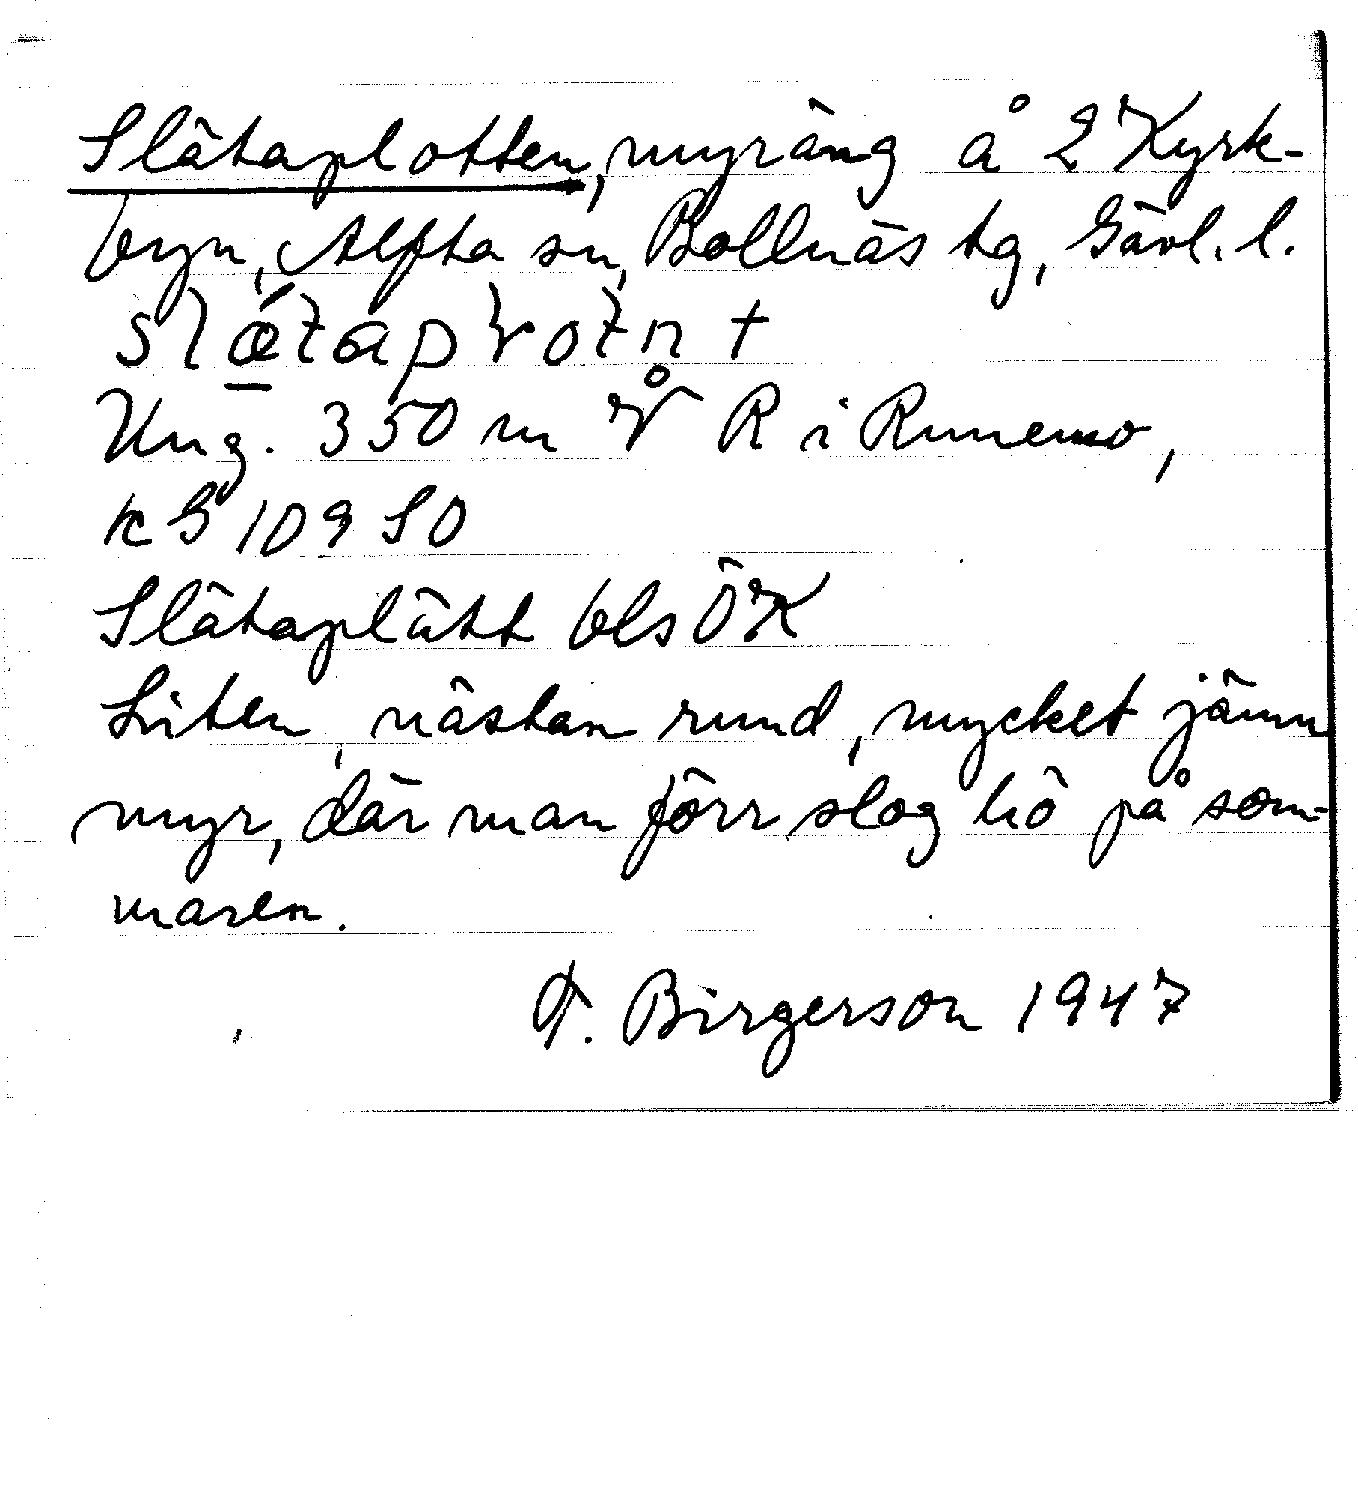 Slätaplotten, myräng å 2 Kyrk-
byn, Alfta sn, Bollnäs tg, Gävl. l.
Ung. 350 m V R i Runemo,
Slätaplätt bls ÖK
Liten, nästan rund, mycket jämn
myr, där man förr slog hö på som-
maren.
T. Birgerson 1947